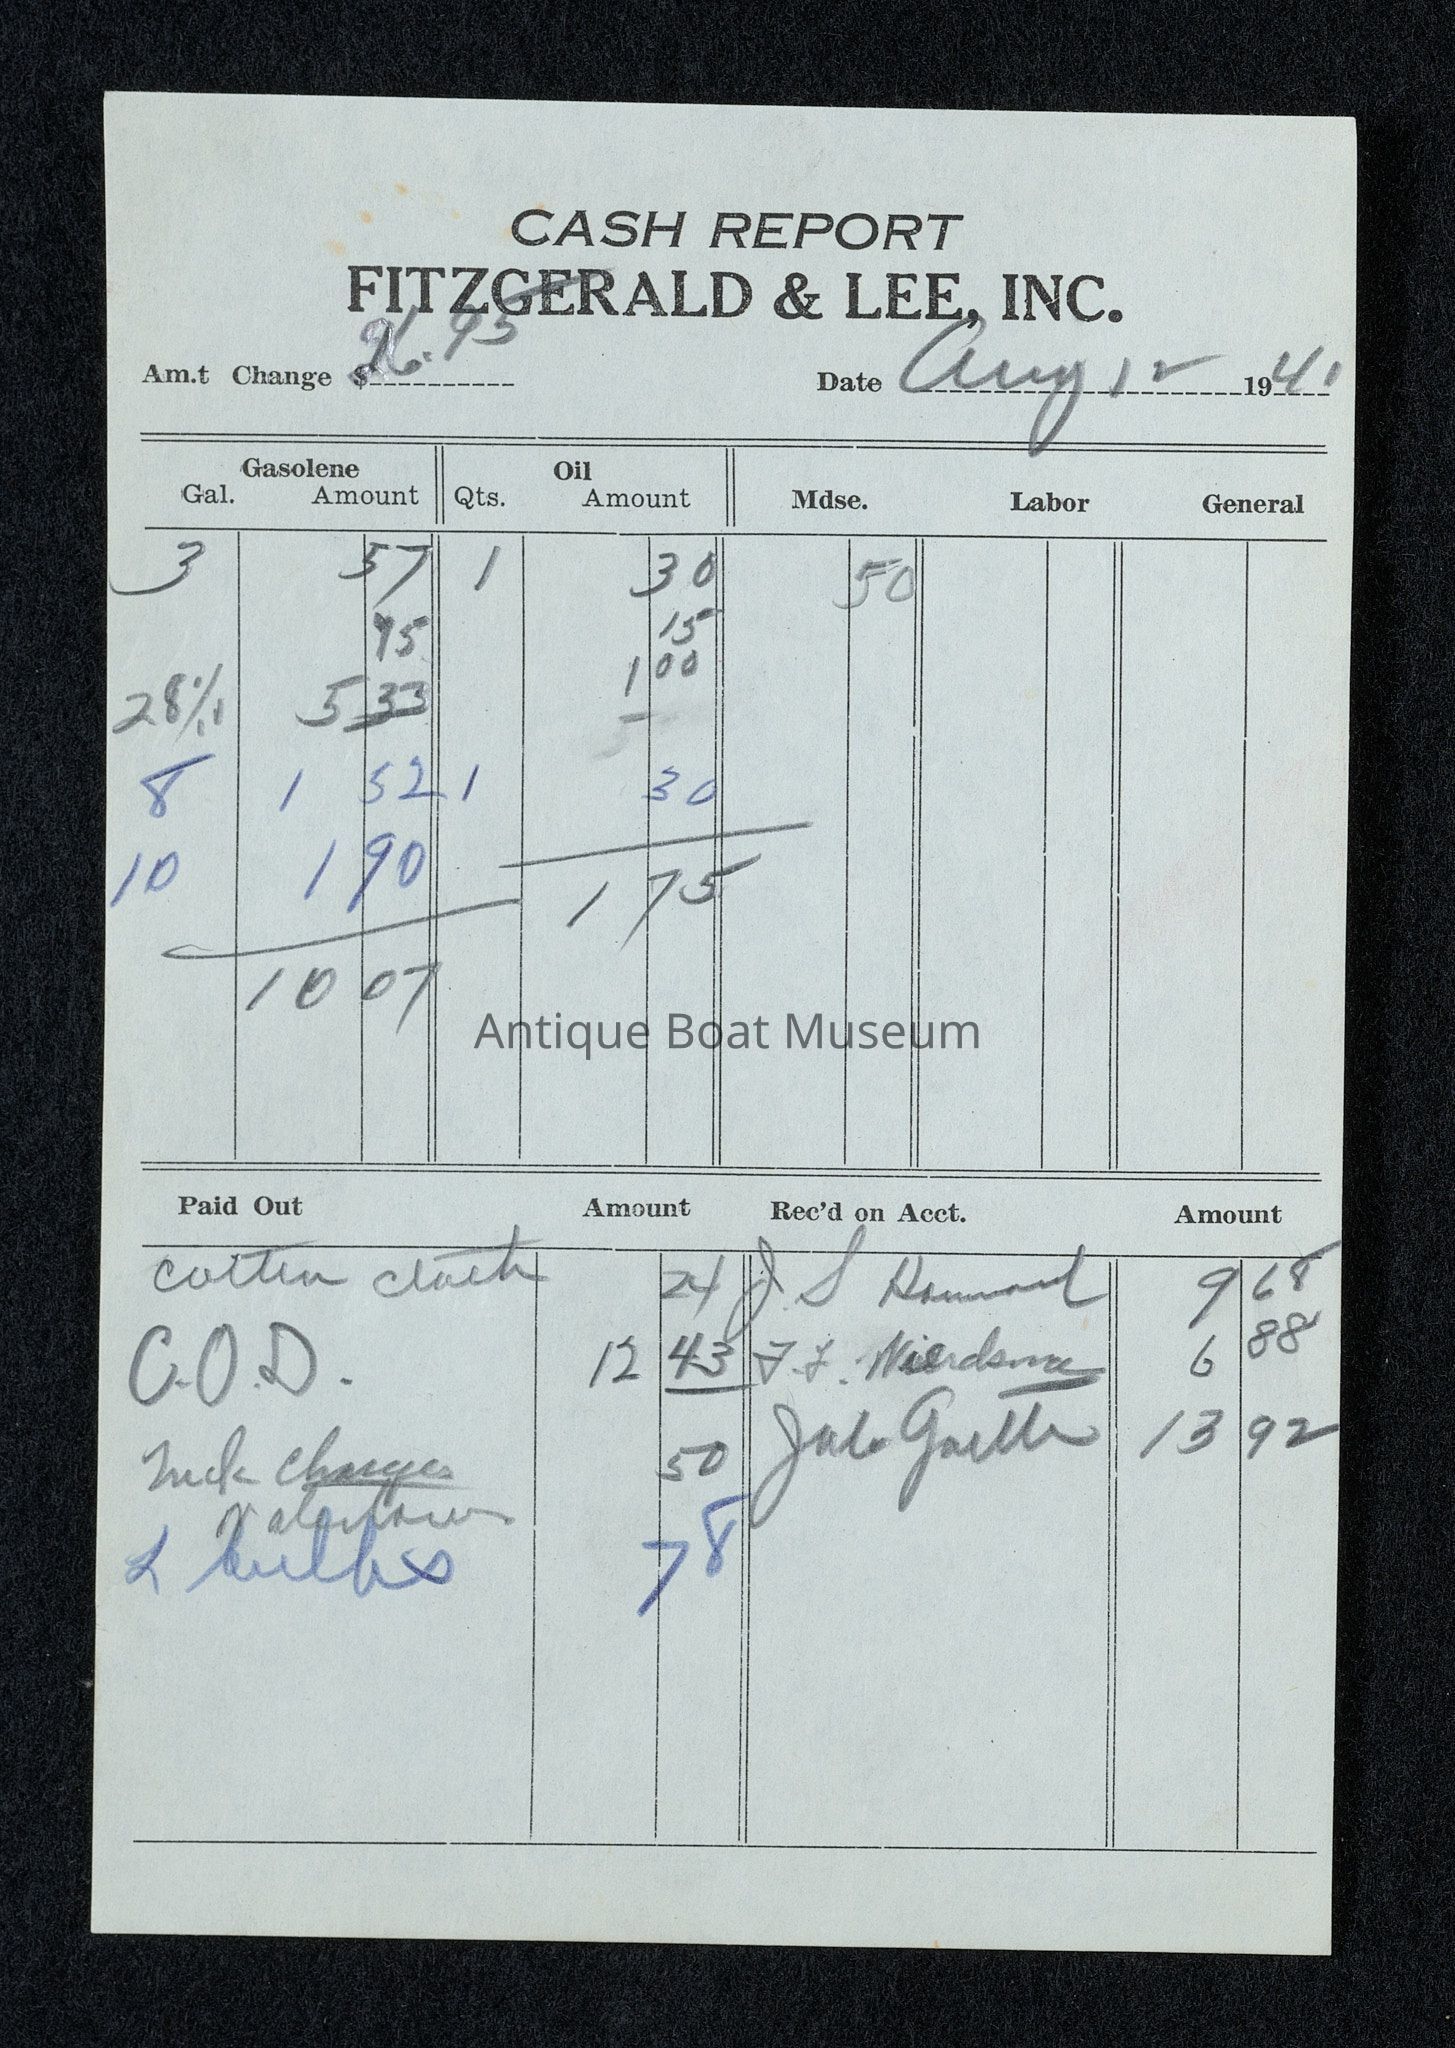 CASH REPORT
FITZGERALD & LEE, INC.
Am.t Change $ 26.95
Date Aug 12 1941
Gasolene Oil
Gal. Amount Qts. Amount Mdse. Labor General
3 57 1 30 50
95 15
28 5 33 1 00
8 1 52 1 30
10 1 90
1 75
10 07
Antique Boat Museum
Paid Out Amount Rec'd on Acct. Amount
cotton cloth 24 J. S 9 68
C.O.D. 12 43 F. F. 6 88
charges 50 13 92
78